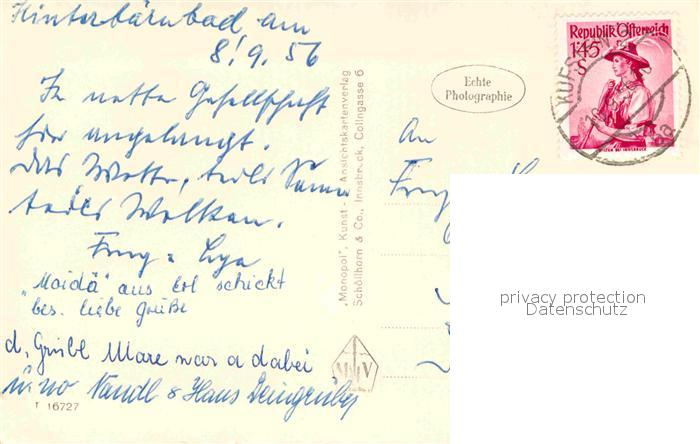 Hinterbärnbad am
8./9. 56
In netter Gesellschaft
hier angelangt.
Das Wetter, teils Sonne
teils Wolken.
"Moidä" aus Erl schickt
bes. liebe Grüße
d. Grübl Mare war a dabei
u. no Nandl & Hans
T 16727
"Monopol", Kunst- u. Ansichtskartenverlag
Schöllhorn & Co., Innsbruck, Collingasse 6
M V
Echte
Photographie
Republik Österreich
1·45
S
WILTEN BEI INNSBRUCK
KUFSTEIN
An
privacy protection
Datenschutz